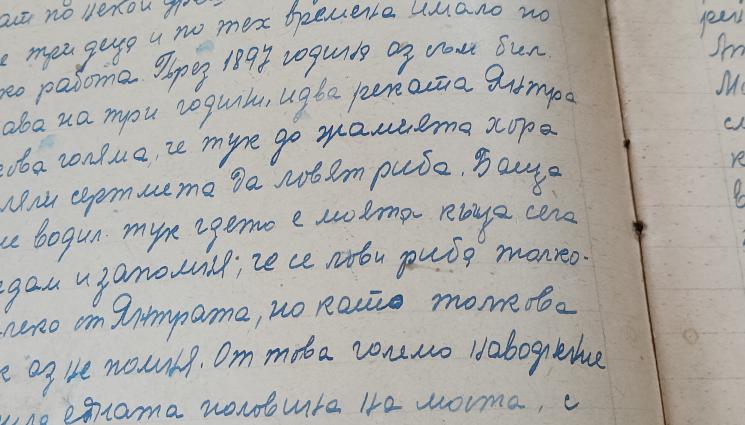 ат по некой дре
е три деца и по тех времена имало по
ко работа. През 1897 година аз съм бил
ава на три години, идва реката Янтра
кова голяма, че тук до жамията хора
ляли сертмета да ловят риба. Баща
ме водил тук гдето е моята къща сега
едам и запомня; че се лови риба толко-
леко от Янтрата, но като толкова
к аз не помня. От това големо наводнение
едната половина на моста, с